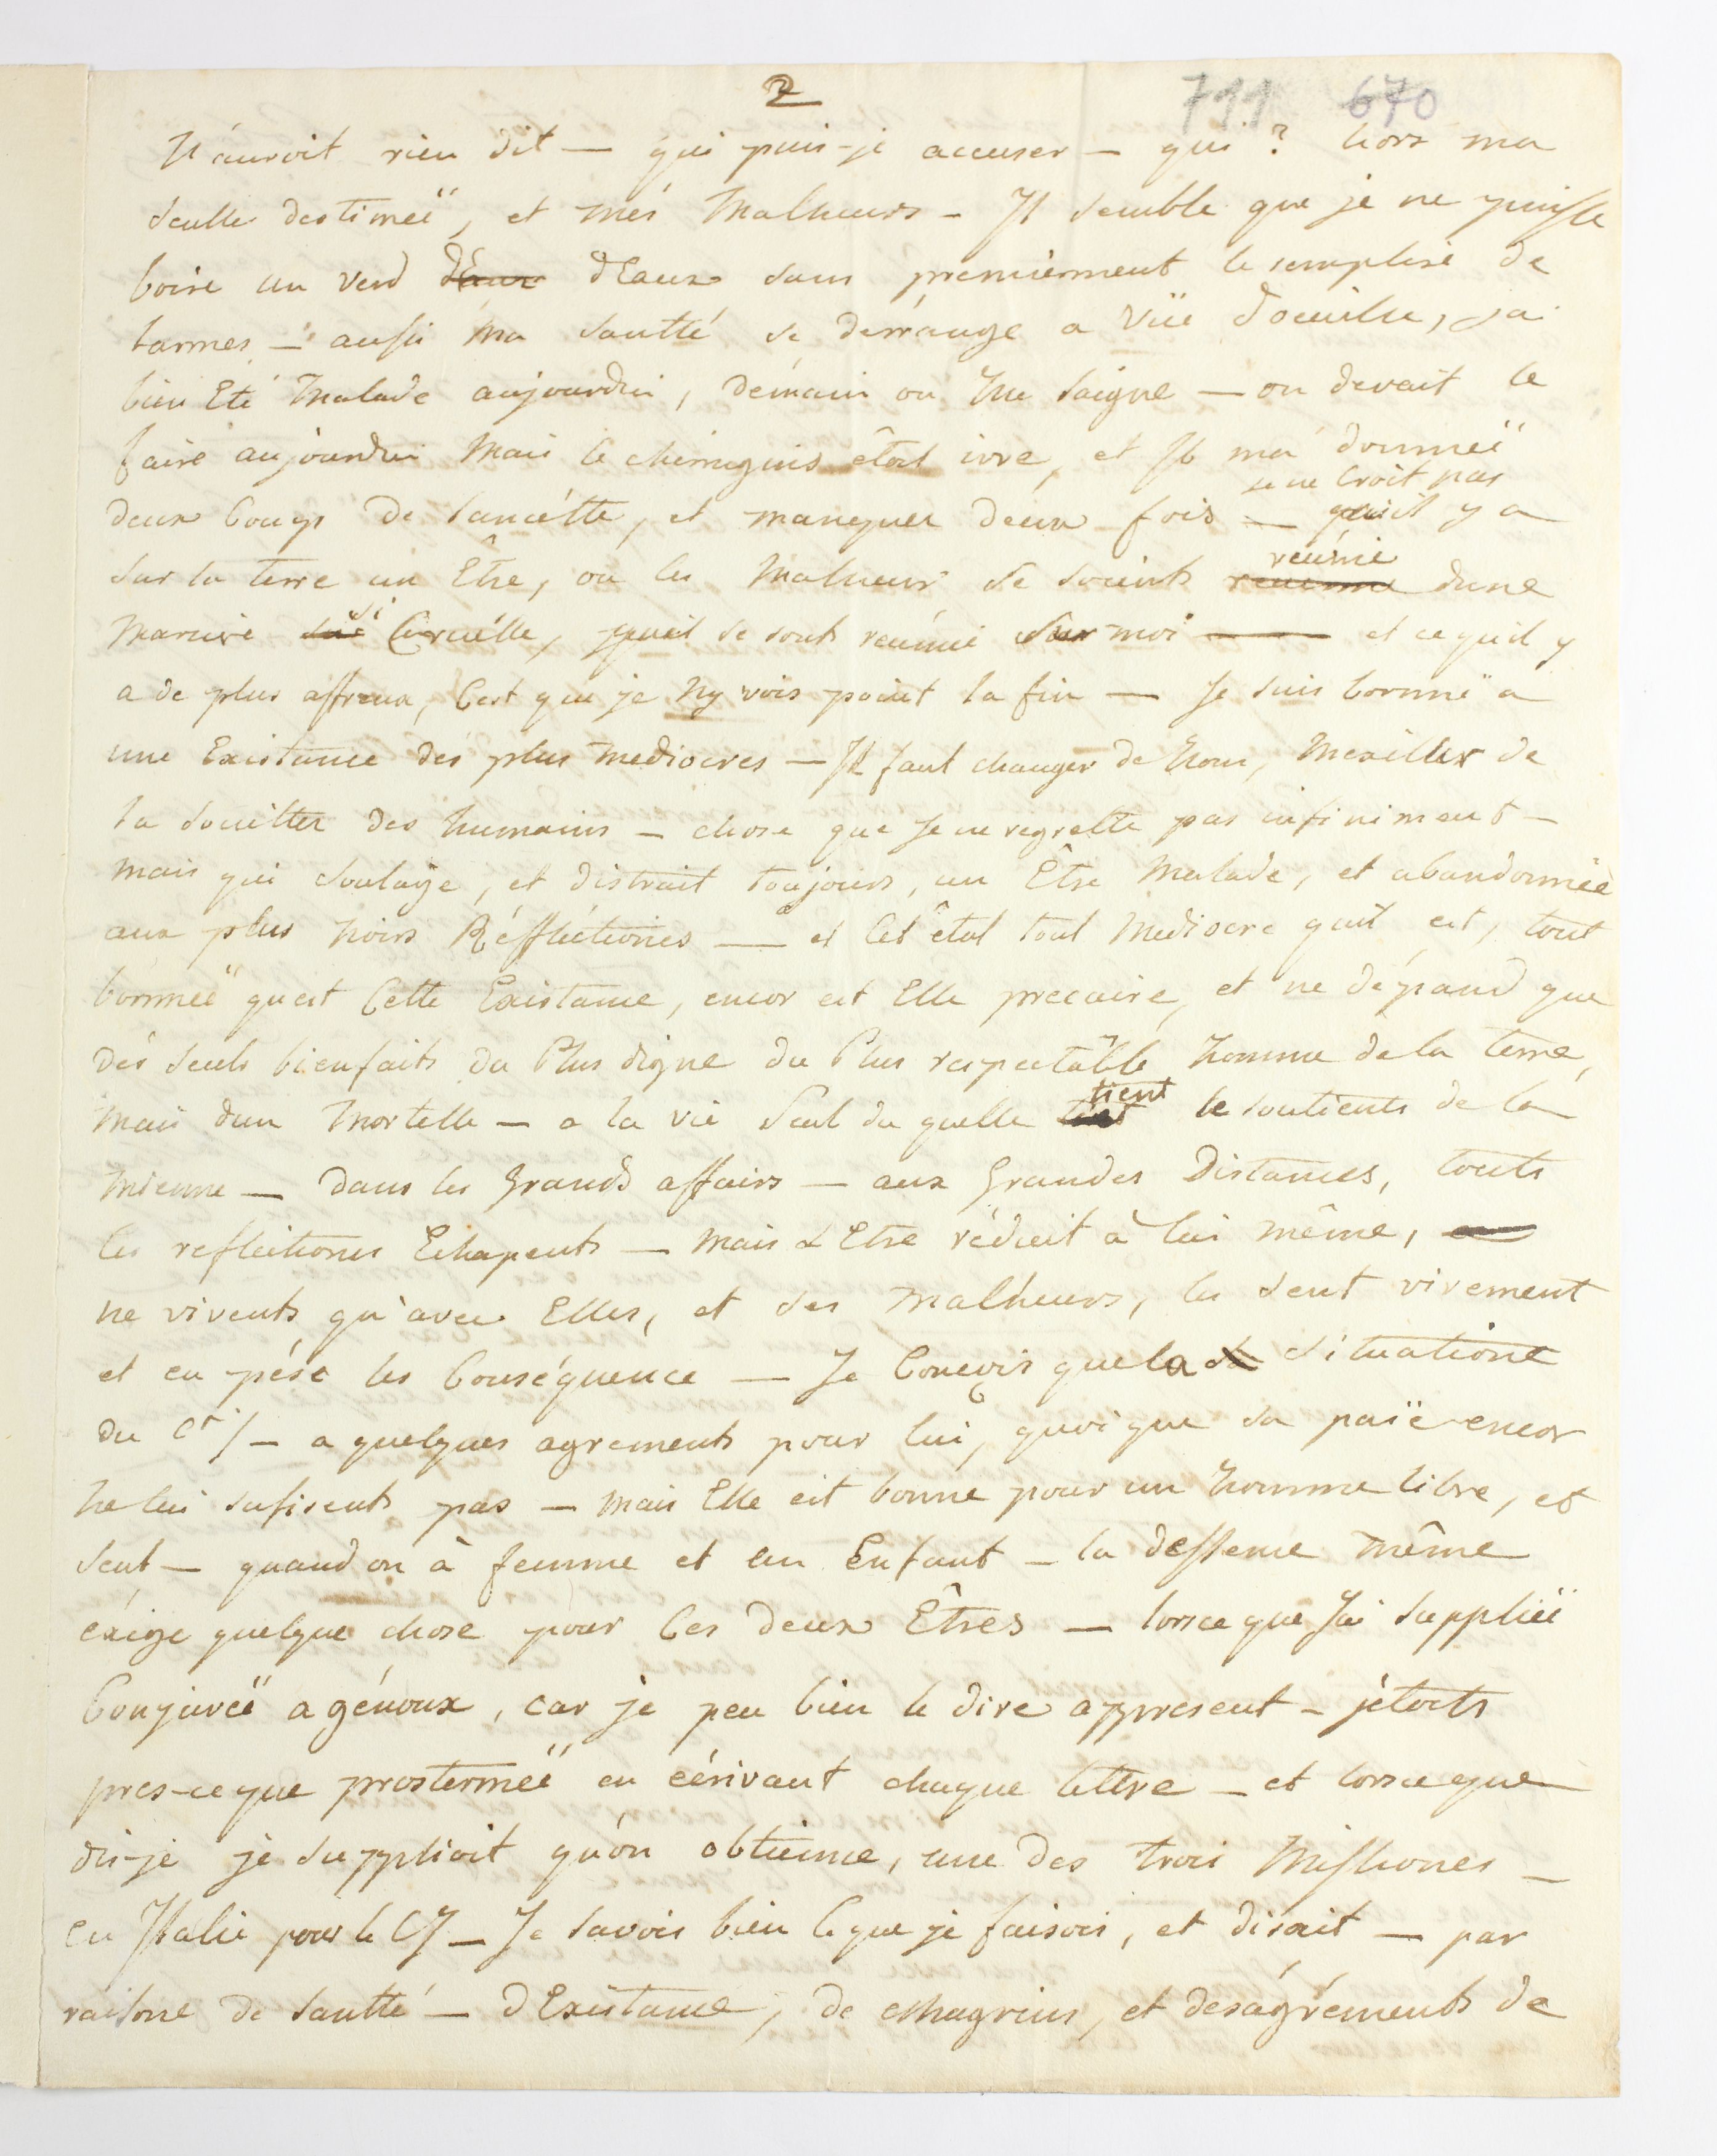 2
711 670
N'auroit rien dit — qui puis-je accuser — qui ? hors ma
seulle destineë, et més Malheurs — Il semble que je ne puisse
boire un verd d'Eaux dEaux sans premierement le remplire de
larmes — aussi ma santté se dérrange a vüe doeuilse, ja
bien Eté Malade aujourdui, demain on Me saigne — on devait le
faire aujourdui Mais le chirurgins étoit ivre, et Il ma donneë
deux Coups de lancétte, et manquer deux fois — je ne Croit pas quil y a
sur la terre un Être, ou les Malheurs se soients reúnie dune
Maniere si Cruélle, quil se sonts reúnie sur moi — et ce quil y
a de plus affreux, C'est que je Ny vois point la fin — Je suis borneë a
une Existance dés plus mediocres — Il faut changer de Nom, Mexiller de
la socuitter des humains — chose que Je ne regrette pas infiniment —
Mais qui soulage, et distrait toujours, un Être Malade, et abandonneë
aux plus Noirs Réfflectiones — et Cét état tout Mediocre quil est, tout
borneë quest Cette Existance, encor est Elle precaire, et ne dépand que
dés seuls bienfaits du Plus digne du Plus respectable homme de la terre,
Mais dun Mortelle — a la vie Seul du quelle tient le soutients de la
Mienne — Dans les Grands affairs — aux Grandes Distances, touts
les reflectiones Echapents — Mais L'Etre réduit à lui même,
ne vivents qu'avec Elles, et ses malheurs, les sent vivement
et en pése les Conséquence — Je Conçois que la situatione
du Cr/ — a quelques agrements pour lui, quoique sa païe encor
Ne lui sufisents pas — Mais Elle est bonne pour un homme libre, et
seul — quand on à femme et un Enfant — la dessence même
exige quelque chose pour Ces deux Êtres — lorsce que J'ai supplieë
Conjureë a génoux, car je peu bien le dire appresent — j'étoits
pres-ce que prosterneë en éérivant chaque lettre — et lorsce que
dis-je je supplioit qu'on obtienne, une des trois Missiones —
en Italie pour le C/ — Je savois bien Ce que je faisois, et disait — par
raisone de santté — dExistance, de chagrins, et deságréments de